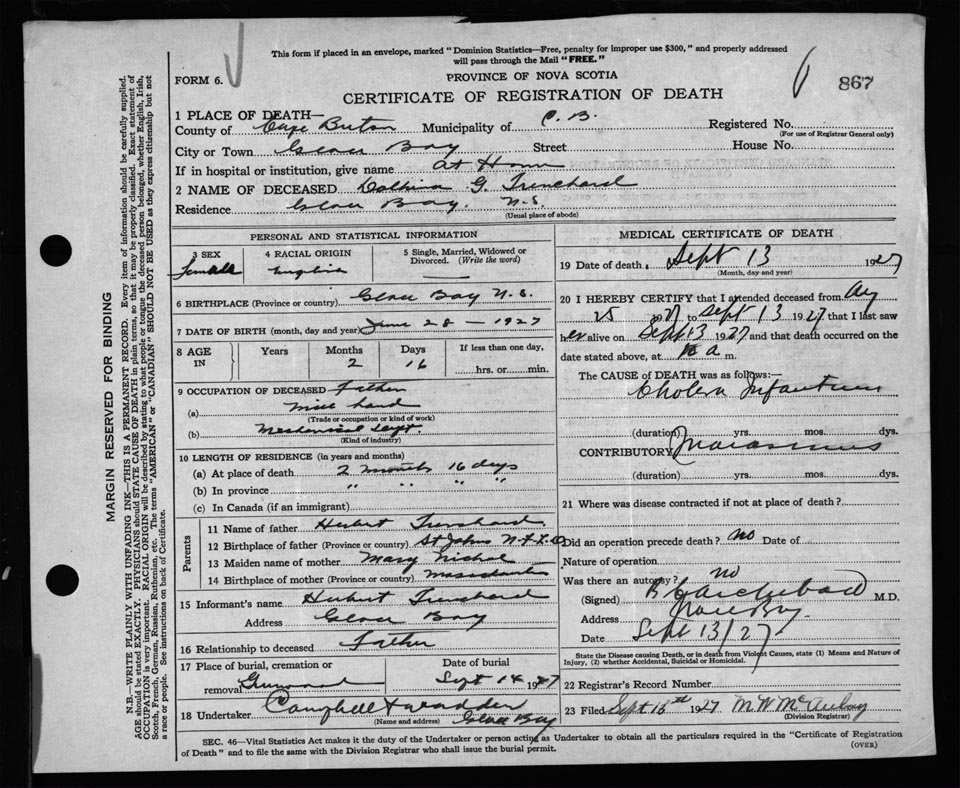 This form if placed in an envelope, marked "Dominion Statistics—Free, penalty for improper use $300," and properly addressed
will pass through the Mail "FREE."
FORM 6.
PROVINCE OF NOVA SCOTIA
867
CERTIFICATE OF REGISTRATION OF DEATH
1 PLACE OF DEATH—
County of Cape Breton Municipality of C. B. Registered No.
(For use of Registrar General only)
City or Town Glace Bay Street House No.
If in hospital or institution, give name at Home
2 NAME OF DECEASED G. Trenchard
Residence Glace Bay. N.S.
(Usual place of abode)
PERSONAL AND STATISTICAL INFORMATION
3 SEX 4 RACIAL ORIGIN 5 Single, Married, Widowed or
Divorced. (Write the word)
Female English
6 BIRTHPLACE (Province or country) Glace Bay N.S.
7 DATE OF BIRTH (month, day and year) June 28 — 1927
8 AGE IN Years Months Days If less than one day,
2 16 hrs. or min.
9 OCCUPATION OF DECEASED Father
(a)
(Trade or occupation or kind of work)
(b) Mechanical Dept.
(Kind of industry)
10 LENGTH OF RESIDENCE (in years and months)
(a) At place of death 2 months 16 days
(b) In province " " " "
(c) In Canada (if an immigrant)
Parents
11 Name of father Hubert Trenchard
12 Birthplace of father (Province or country) St Johns N.F.L.D
13 Maiden name of mother Mary Nichol
14 Birthplace of mother (Province or country)
15 Informant's name Hubert Trenchard
Address Glace Bay
16 Relationship to deceased Father
17 Place of burial, cremation or Date of burial
removal Greenwood Sept 14 1927
18 Undertaker Campbell
(Name and address) Glace Bay
MEDICAL CERTIFICATE OF DEATH
19 Date of death, Sept 13 1927
(Month, day and year)
20 I HEREBY CERTIFY that I attended deceased from Aug
25 1927 to Sept 13 1927 that I last saw
her alive on Sept 13 1927 and that death occurred on the
date stated above, at a m.
The CAUSE of DEATH was as follows:—
Cholera Infantum
(duration) yrs. mos. dys.
CONTRIBUTORY Marasmus
(duration) yrs. mos. dys.
21 Where was disease contracted if not at place of death?
Did an operation precede death? no Date of
Nature of operation
Was there an autopsy? no
(Signed) Archibald M.D.
Address Glace Bay.
Date Sept 13/27
State the Disease causing Death, or in death from Violent Causes, state (1) Means and Nature of
Injury, (2) whether Accidental, Suicidal or Homicidal.
22 Registrar's Record Number
23 Filed Sept 16th 1927
(Division Registrar)
SEC. 46—Vital Statistics Act makes it the duty of the Undertaker or person acting as Undertaker to obtain all the particulars required in the "Certificate of Registration
of Death" and to file the same with the Division Registrar who shall issue the burial permit.
(OVER)
MARGIN RESERVED FOR BINDING
N.B.—WRITE PLAINLY WITH UNFADING INK—THIS IS A PERMANENT RECORD. Every item of information should be carefully supplied.
AGE should be stated EXACTLY. PHYSICIANS should STATE CAUSE OF DEATH in plain terms, so that it may be properly classified. Exact statement of
OCCUPATION is very important. RACIAL ORIGIN will be described by stating to what people or tongue the deceased person belonged, whether English, Irish,
Scotch, French, German, Russian, Ruthenian, etc. The terms "AMERICAN" or "CANADIAN" SHOULD NOT BE USED as they express citizenship but not
a race or people. See instructions on back of Certificate.